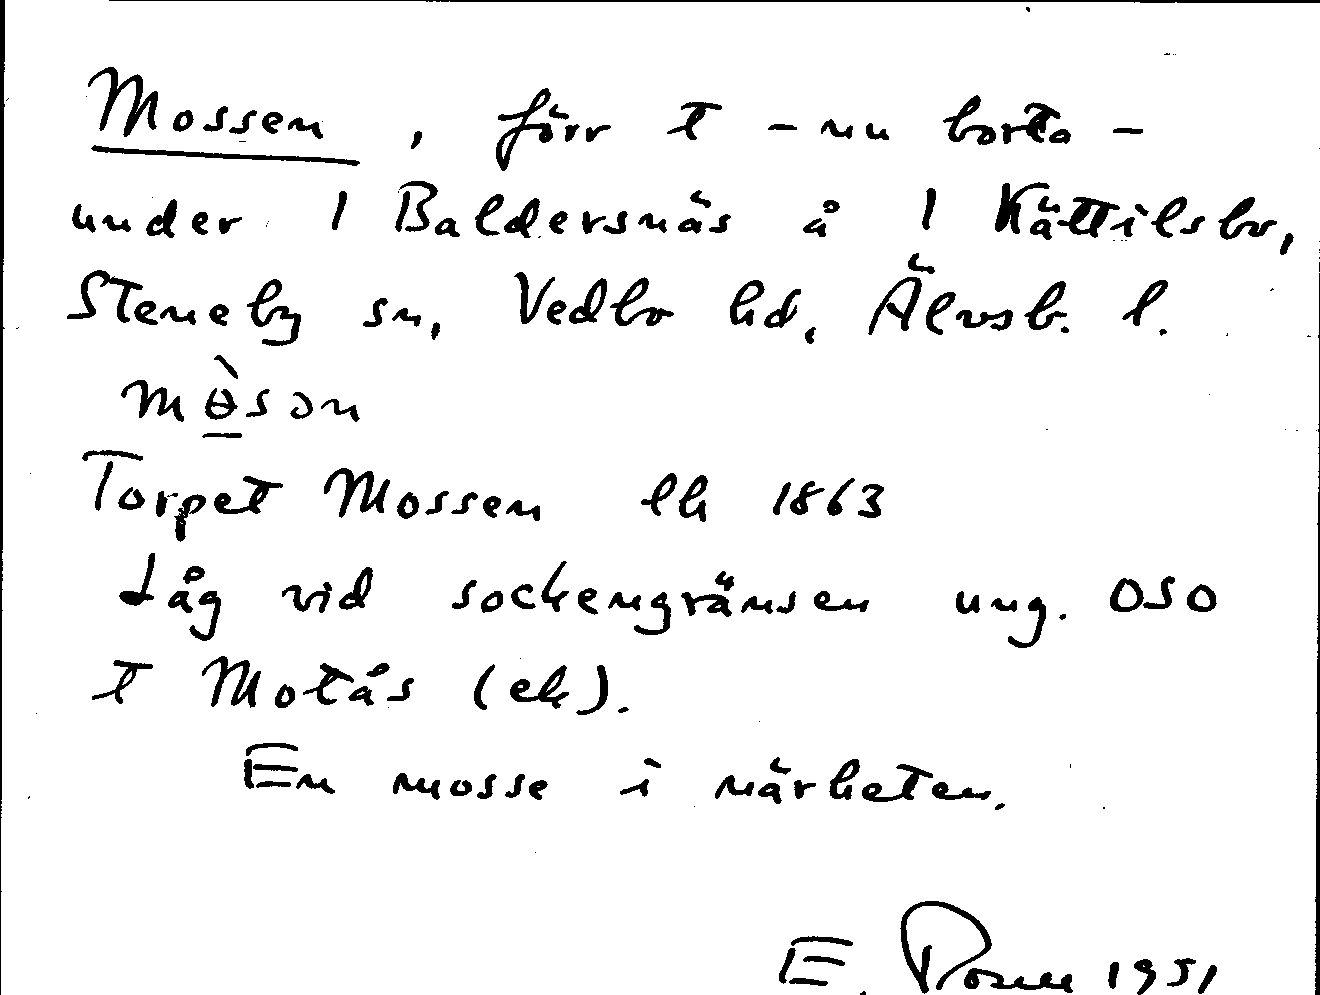 Mossen, förr t - nu borta -
under 1 Baldersnäs å 1 Kättilsbo,
Steneby sn, Vedbo hd, Älvsb. l.
mɵ̀sɔn
Torpet Mossen lh 1863
Låg vid sockengränsen ung. OSO
t Motås (ek).
En mosse i närheten.
E. 1951